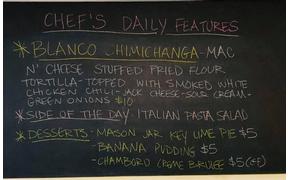 CHEF'S DAILY FEATURES
* BLANCO CHIMICHANGA - MAC
N' CHEESE STUFFED FRIED FLOUR
TORTILLA - TOPPED WITH SMOKED WHITE
CHICKEN CHILI - JACK CHEESE - SOUR CREAM -
GREEN ONIONS $10
* SIDE OF THE DAY - ITALIAN PASTA SALAD
* DESSERTS - MASON JAR KEY LIME PIE $5
- BANANA PUDDING $5
- CHAMBORD CREME BRULEE $5 (GF)